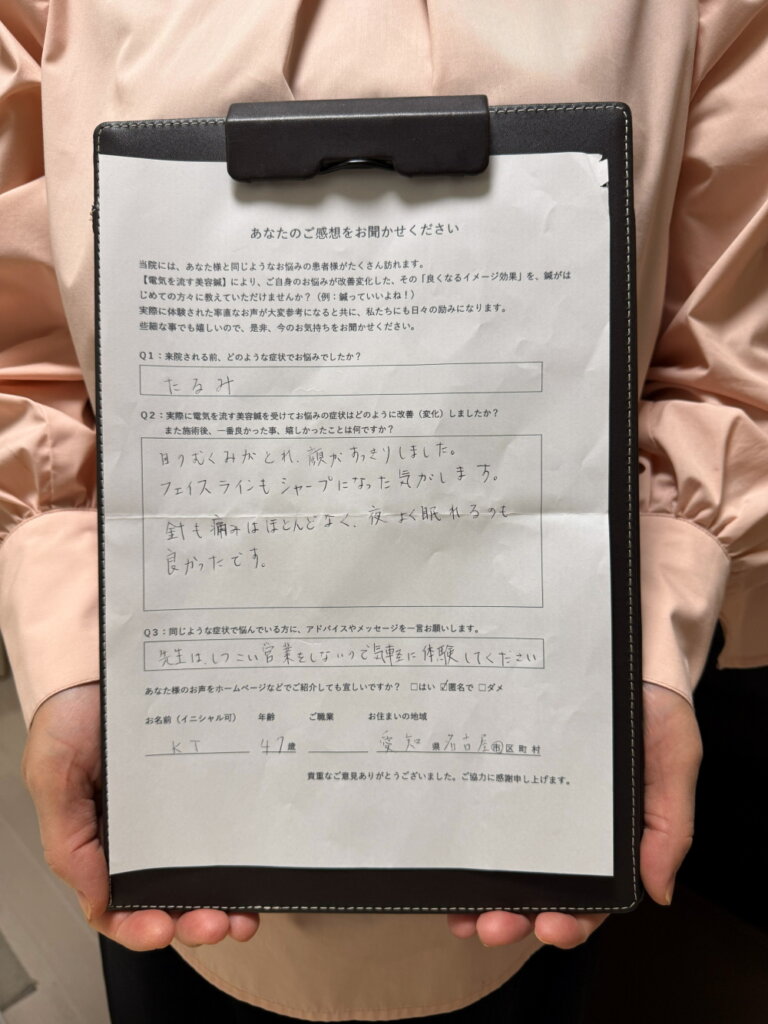 あなたのご感想をお聞かせください
当院には、あなた様と同じようなお悩みの患者様がたくさん訪れます。
【電気を流す美容鍼】により、ご自身のお悩みが改善変化した、その「良くなるイメージ効果」を、鍼がは
じめての方々に教えていただけませんか？（例：鍼っていいよね！）
実際に体験された率直なお声が大変参考になると共に、私たちにも日々の励みになります。
些細な事でも嬉しいので、是非、今のお気持ちをお聞かせください。
Q１：来院される前、どのような症状でお悩みでしたか？
たるみ
Q２：実際に電気を流す美容鍼を受けてお悩みの症状はどのように改善（変化）しましたか？
また施術後、一番良かった事、嬉しかったことは何ですか？
目のむくみがとれ、顔がすっきりしました。
フェイスラインもシャープになった気がします。
針も痛みはほとんどなく、夜よく眠れるのも
良かったです。
Q３：同じような症状で悩んでいる方に、アドバイスやメッセージを一言お願いします。
先生は、しつこい営業をしないので気軽に体験してください
あなた様のお声をホームページなどでご紹介しても宜しいですか？ □はい ☑匿名で □ダメ
お名前（イニシャル可） 年齢 ご職業 お住まいの地域
KT 47歳 愛知県名古屋市区町村
貴重なご意見ありがとうございました。ご協力に感謝申し上げます。